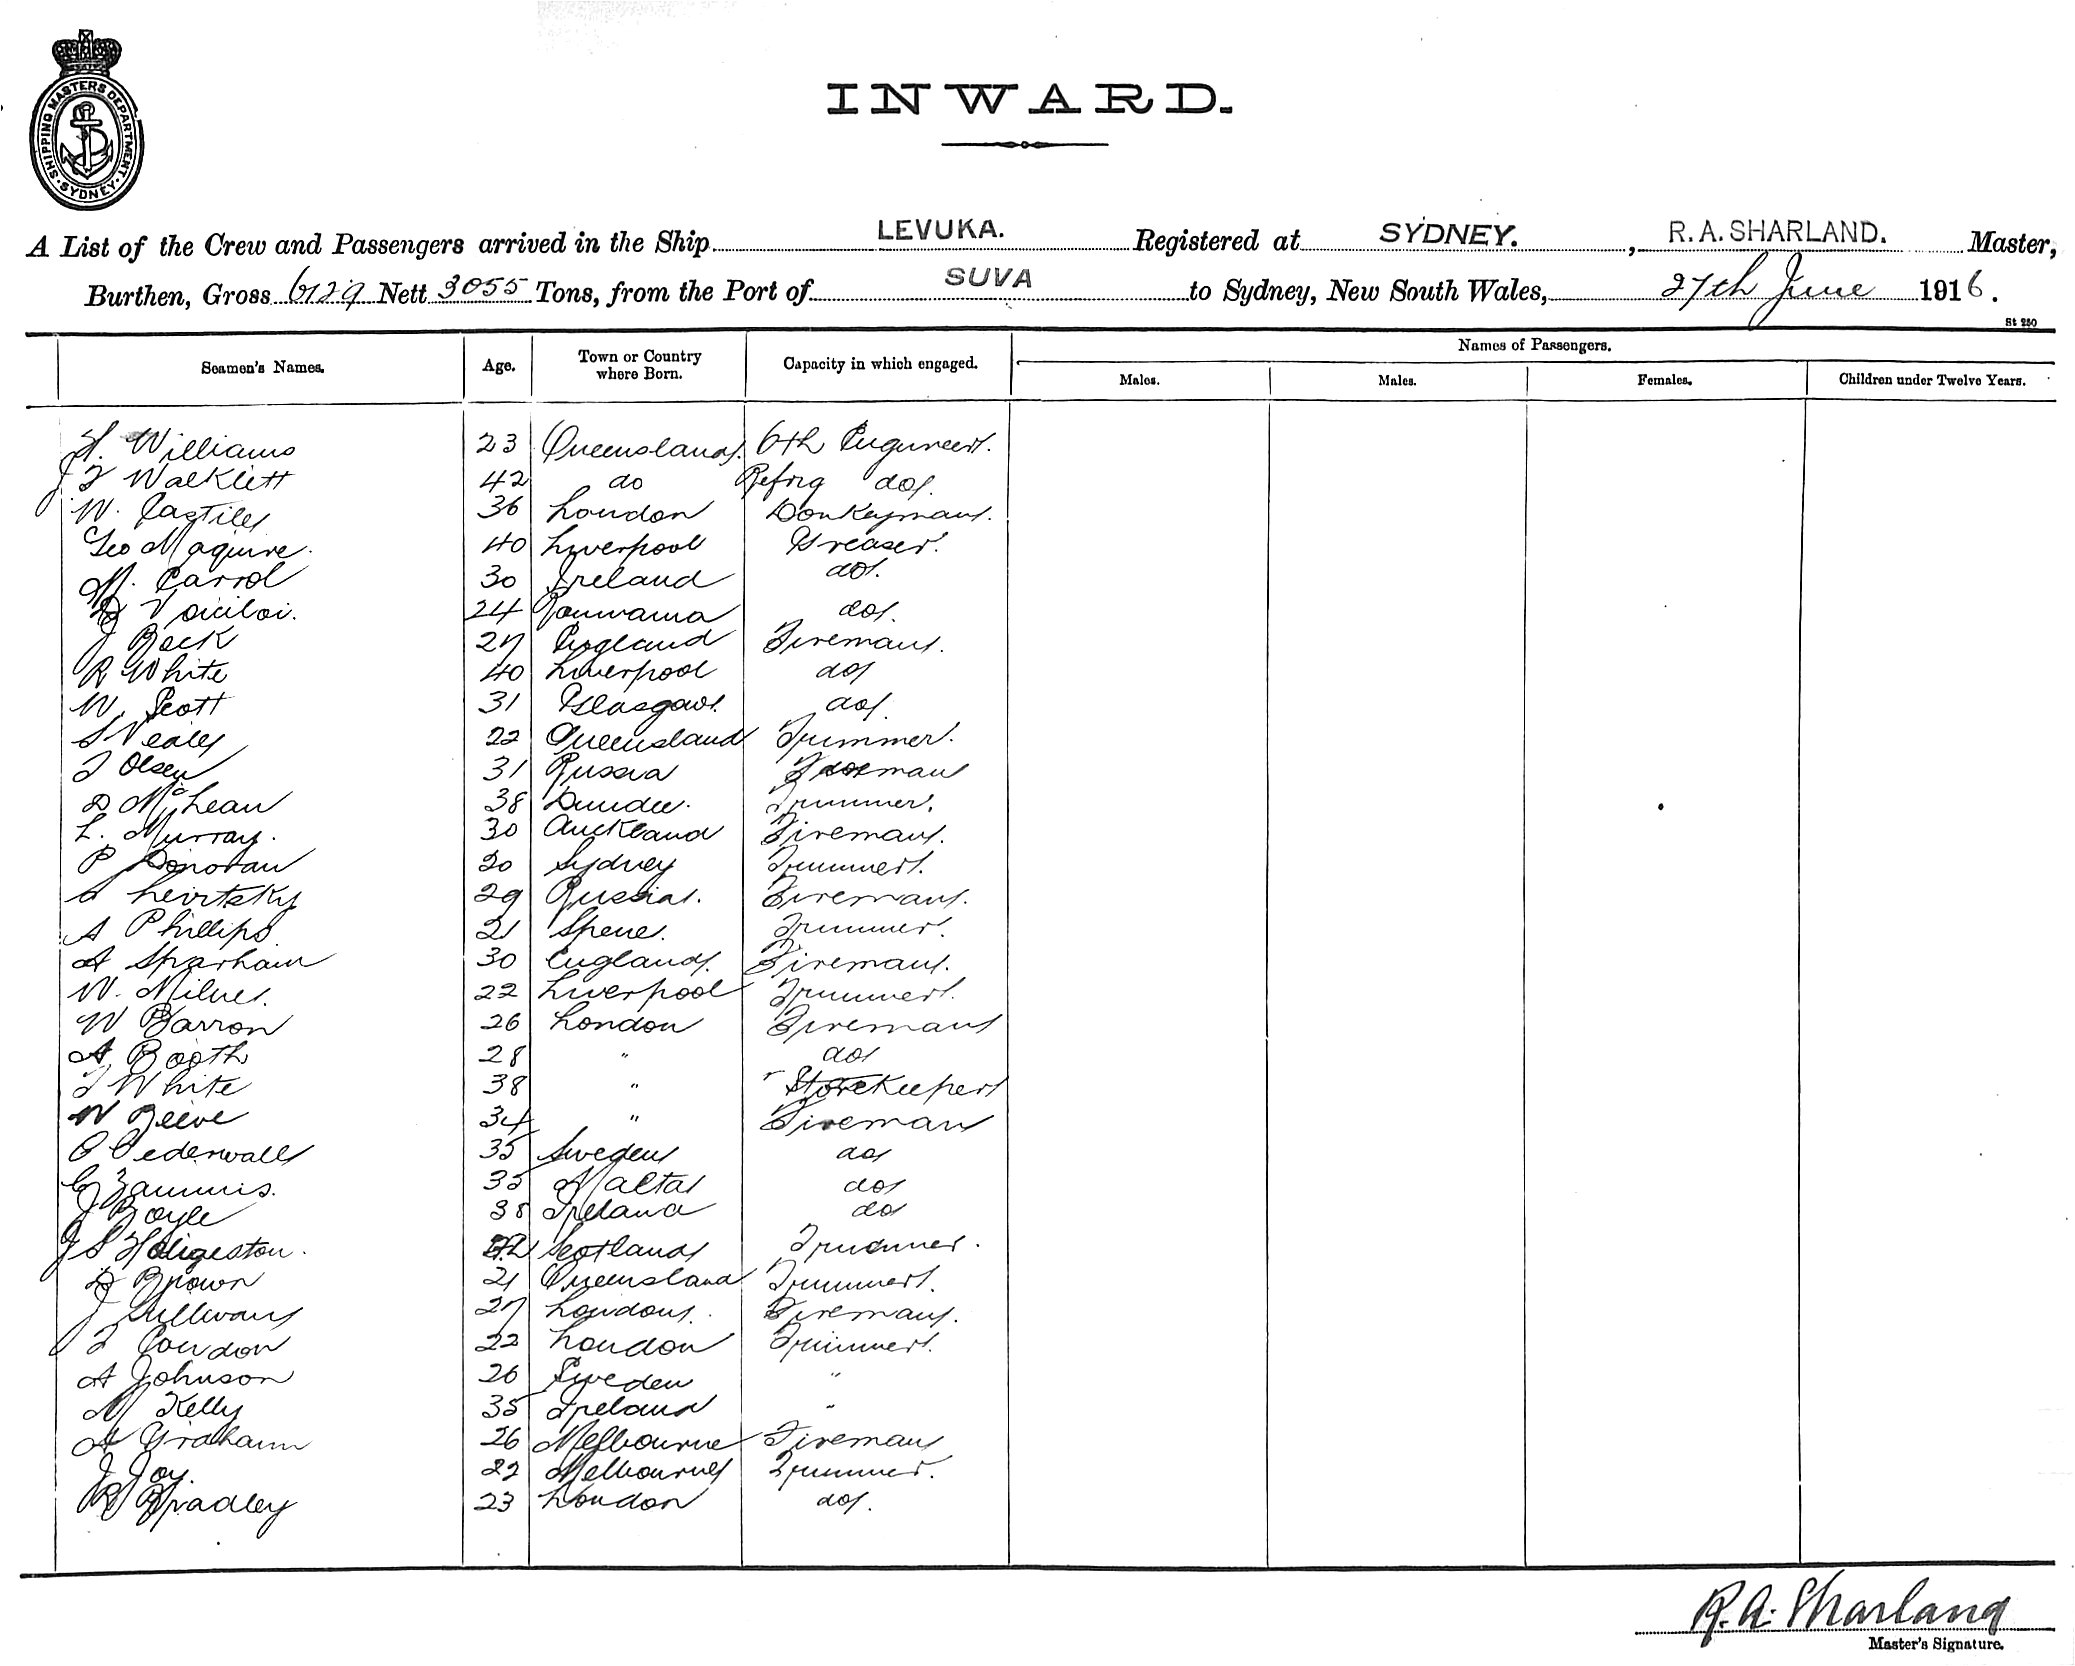 SHIPPING MASTERS DEPARTMENT
SYDNEY
INWARD.
A List of the Crew and Passengers arrived in the Ship LEVUKA. Registered at SYDNEY. , R.A. SHARLAND. Master,
Burthen, Gross 6129 Nett 3055 Tons, from the Port of SUVA to Sydney, New South Wales, 27th June 1916.
St 250
Seamen's Names. Age. Town or Country where Born. Capacity in which engaged. Names of Passengers.
Males. Males. Females. Children under Twelve Years.
H. Williams 23 Queensland. 6th Engineer.
J T Walklett 42 do Refrig do.
W. Castile 36 London Donkeyman.
Geo Maguire. 40 Liverpool Greaser.
M. Carrol 30 Ireland do.
24 do.
J Beck 27 England Fireman.
R White 40 Liverpool do
W. Scott 31 Glasgow. do.
S Neale 22 Queensland Trimmer.
T Olsen 31 Russia
D McLean 38 Dundee. Trimmer.
L. Murray. 30 Auckland Fireman.
P Donovan 20 Sydney Trimmer.
A Levitsky 29 Russia. Fireman.
A Phillips 21 Trimmer.
A Sparham 30 England. Fireman.
W. Milne. 22 Liverpool Trimmer.
W Barron 26 London Fireman
A. Booth 28 " do
T White 38 " Storekeeper
W Reeve 34 " Fireman
C Cederwall 35 Sweden do
C Zammis. 35 Malta do
J Boyle 38 Ireland do
J S Scotland Trimmer.
D Brown 21 Queensland Trimmer.
J Sullivan 27 London. Fireman.
T Condon 22 London Trimmer.
A Johnson 26 Sweden "
M Kelly 35 Ireland "
A Graham 26 Melbourne Fireman
J Joy. 22 Melbourne Trimmer.
R Bradley 23 London do.
R.A. Sharland
Master's Signature.